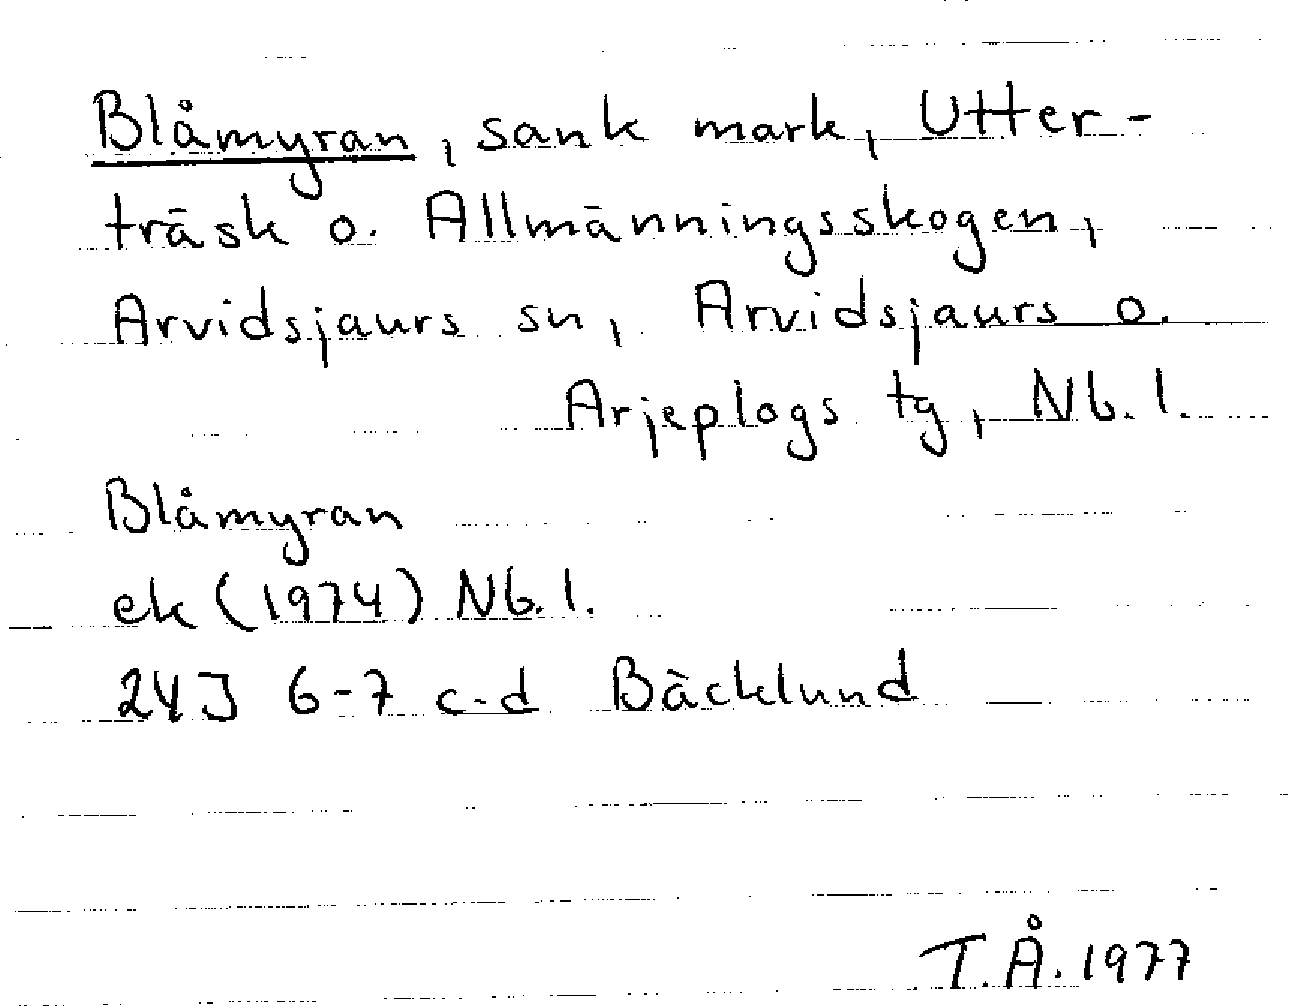 Blåmyran, sank mark, Utter-
träsk o. Allmänningsskogen,
Arvidsjaurs sn, Arvidsjaurs o.
Arjeplogs tg, Nb. l.
Blåmyran
ek (1974) Nb. l.
24J 6-7 c-d Bäcklund
T.Å. 1977